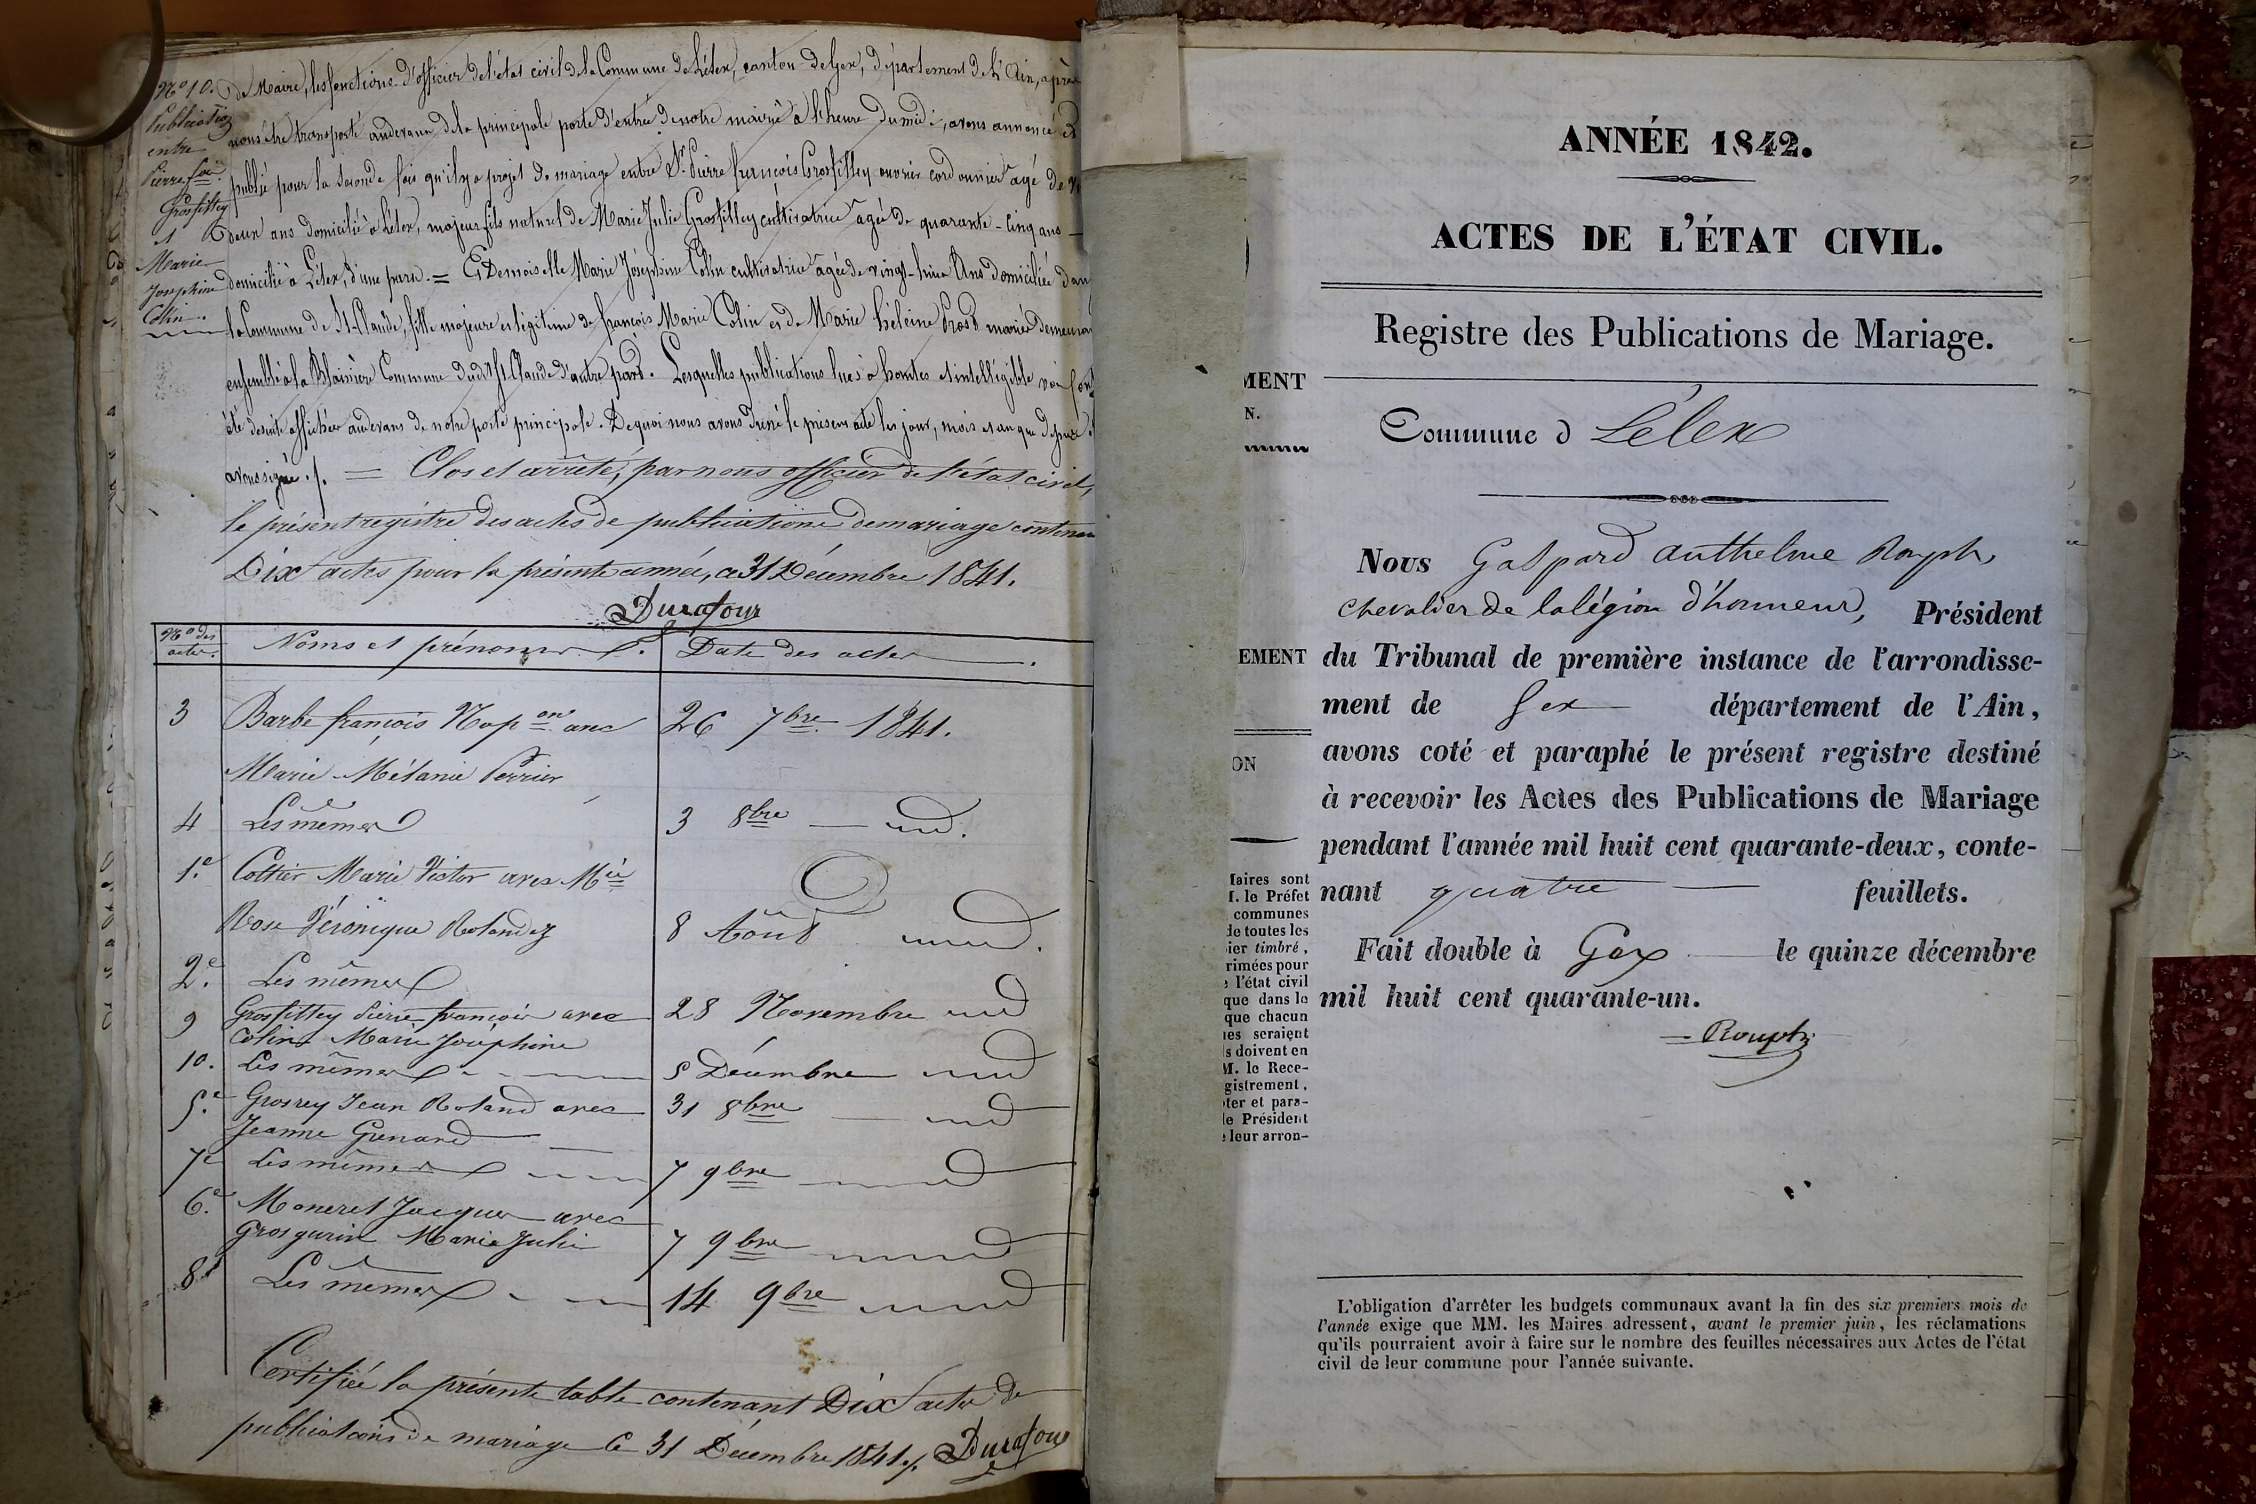 No 10.
Publication
entre
Pierre foi
Grosfilley
et
Marie
Josephine
Colin.
de Maire, les fonctions d'officier de l'état civil de la Commune de Lélex, canton de Gex, département de l'Ain, après
nous être transporté audevant de la principale porte d'entrée de notre mairie à l'heure du midi, avons annoncé et
publié pour la seconde fois qu'il y a projet de mariage entre Sr. Pierre françois Grosfilley ouvrier cordonnier agé de
deux ans domicilié à Lélex, majeur fils naturel de Marie Julie Grosfilley cultivatrice agée de quarante-cinq ans
domicilié à Lélex, d'une part. = Et Demoiselle Marie Joséphine Colin cultivatrice agée de vingt-huit Ans domiciliée dans
la Commune de St-Claude, fille majeure et légitime de françois Marie Colin et de Marie héleine Grosd mariés demeurant
ensemble à la Commune dudt St Claude d'autre part. Lesquelles publications lues à hautes et intelligible voix sont
été desuite affichées audevant de notre porte principale. De quoi nous avons dressé le présent acte les jour, mois et an que dessus et
avons signé ./. = Clos et arrêté, par nous officier de l'état civil,
le présent registre des actes de publications de mariage contenant
Dix actes pour la présente année, ce 31 Décembre 1841.
Durafour
No des actes. Noms et prénoms. Date des actes.
3 Barbe françois Napon avec 26 7bre 1841.
Marie Mélanie Perrier
4 Les mêmes 3 8bre — id.
1.e Cottier Marie Victor avec Mie
Rose Véronique Rolandez 8 Août id.
2.e Les mêmes
9 Grosfilley Pierre françois avec 28 Novembre id
Colin Marie Joséphine
10. Les mêmes 5 Décembre id
5.e Grosrey Jean Roland avec 31 8bre id
Jeanne Grenard
7e Les mêmes 7 9bre id
6.e Moneret Jacques avec
Grosgurin Marie Julie 7 9bre id
8e Les mêmes 14 9bre id
Certifiée la présente table contenant Dix actes de
publications de mariage ce 31 Décembre 1841./. Durafour
MENT
N.
EMENT
ON
Maires sont
M. le Préfet
communes
de toutes les
ier timbré,
rimées pour
l'état civil
que dans le
que chacun
es seraient
s doivent en
M. le Rece-
gistrement,
ter et para-
le Président
leur arron-
ANNÉE 1842.
ACTES DE L'ÉTAT CIVIL.
Registre des Publications de Mariage.
Commune d Lélex
Nous Gaspard Anthelme Rouph,
Chevalier de la légion d'honneur, Président
du Tribunal de première instance de l'arrondisse-
ment de Gex département de l'Ain,
avons coté et paraphé le présent registre destiné
à recevoir les Actes des Publications de Mariage
pendant l'année mil huit cent quarante-deux, conte-
nant quatre feuillets.
Fait double à Gex le quinze décembre
mil huit cent quarante-un.
Rouph
L'obligation d'arrêter les budgets communaux avant la fin des six premiers mois de
l'année exige que MM. les Maires adressent, avant le premier juin, les réclamations
qu'ils pourraient avoir à faire sur le nombre des feuilles nécessaires aux Actes de l'état
civil de leur commune pour l'année suivante.